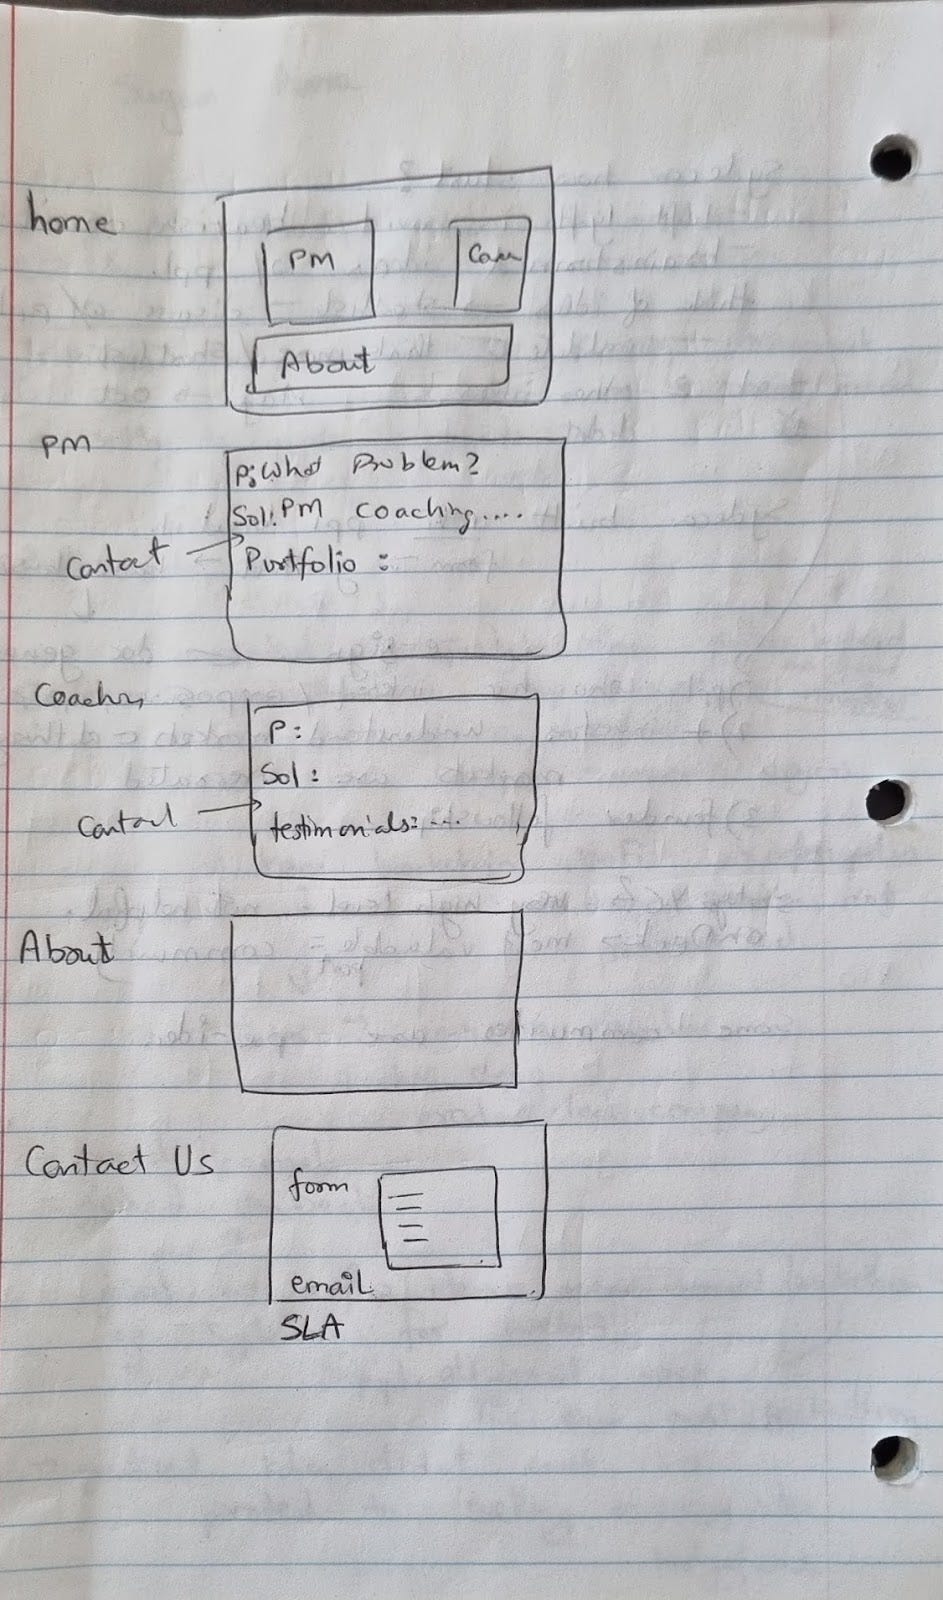 home
PM
About
PM
P: What Problem?
Sol: PM coaching....
Contact
Portfolio :
P:
Sol :
Contact
testimonials: ...
About
Contact Us
form
email
SLA